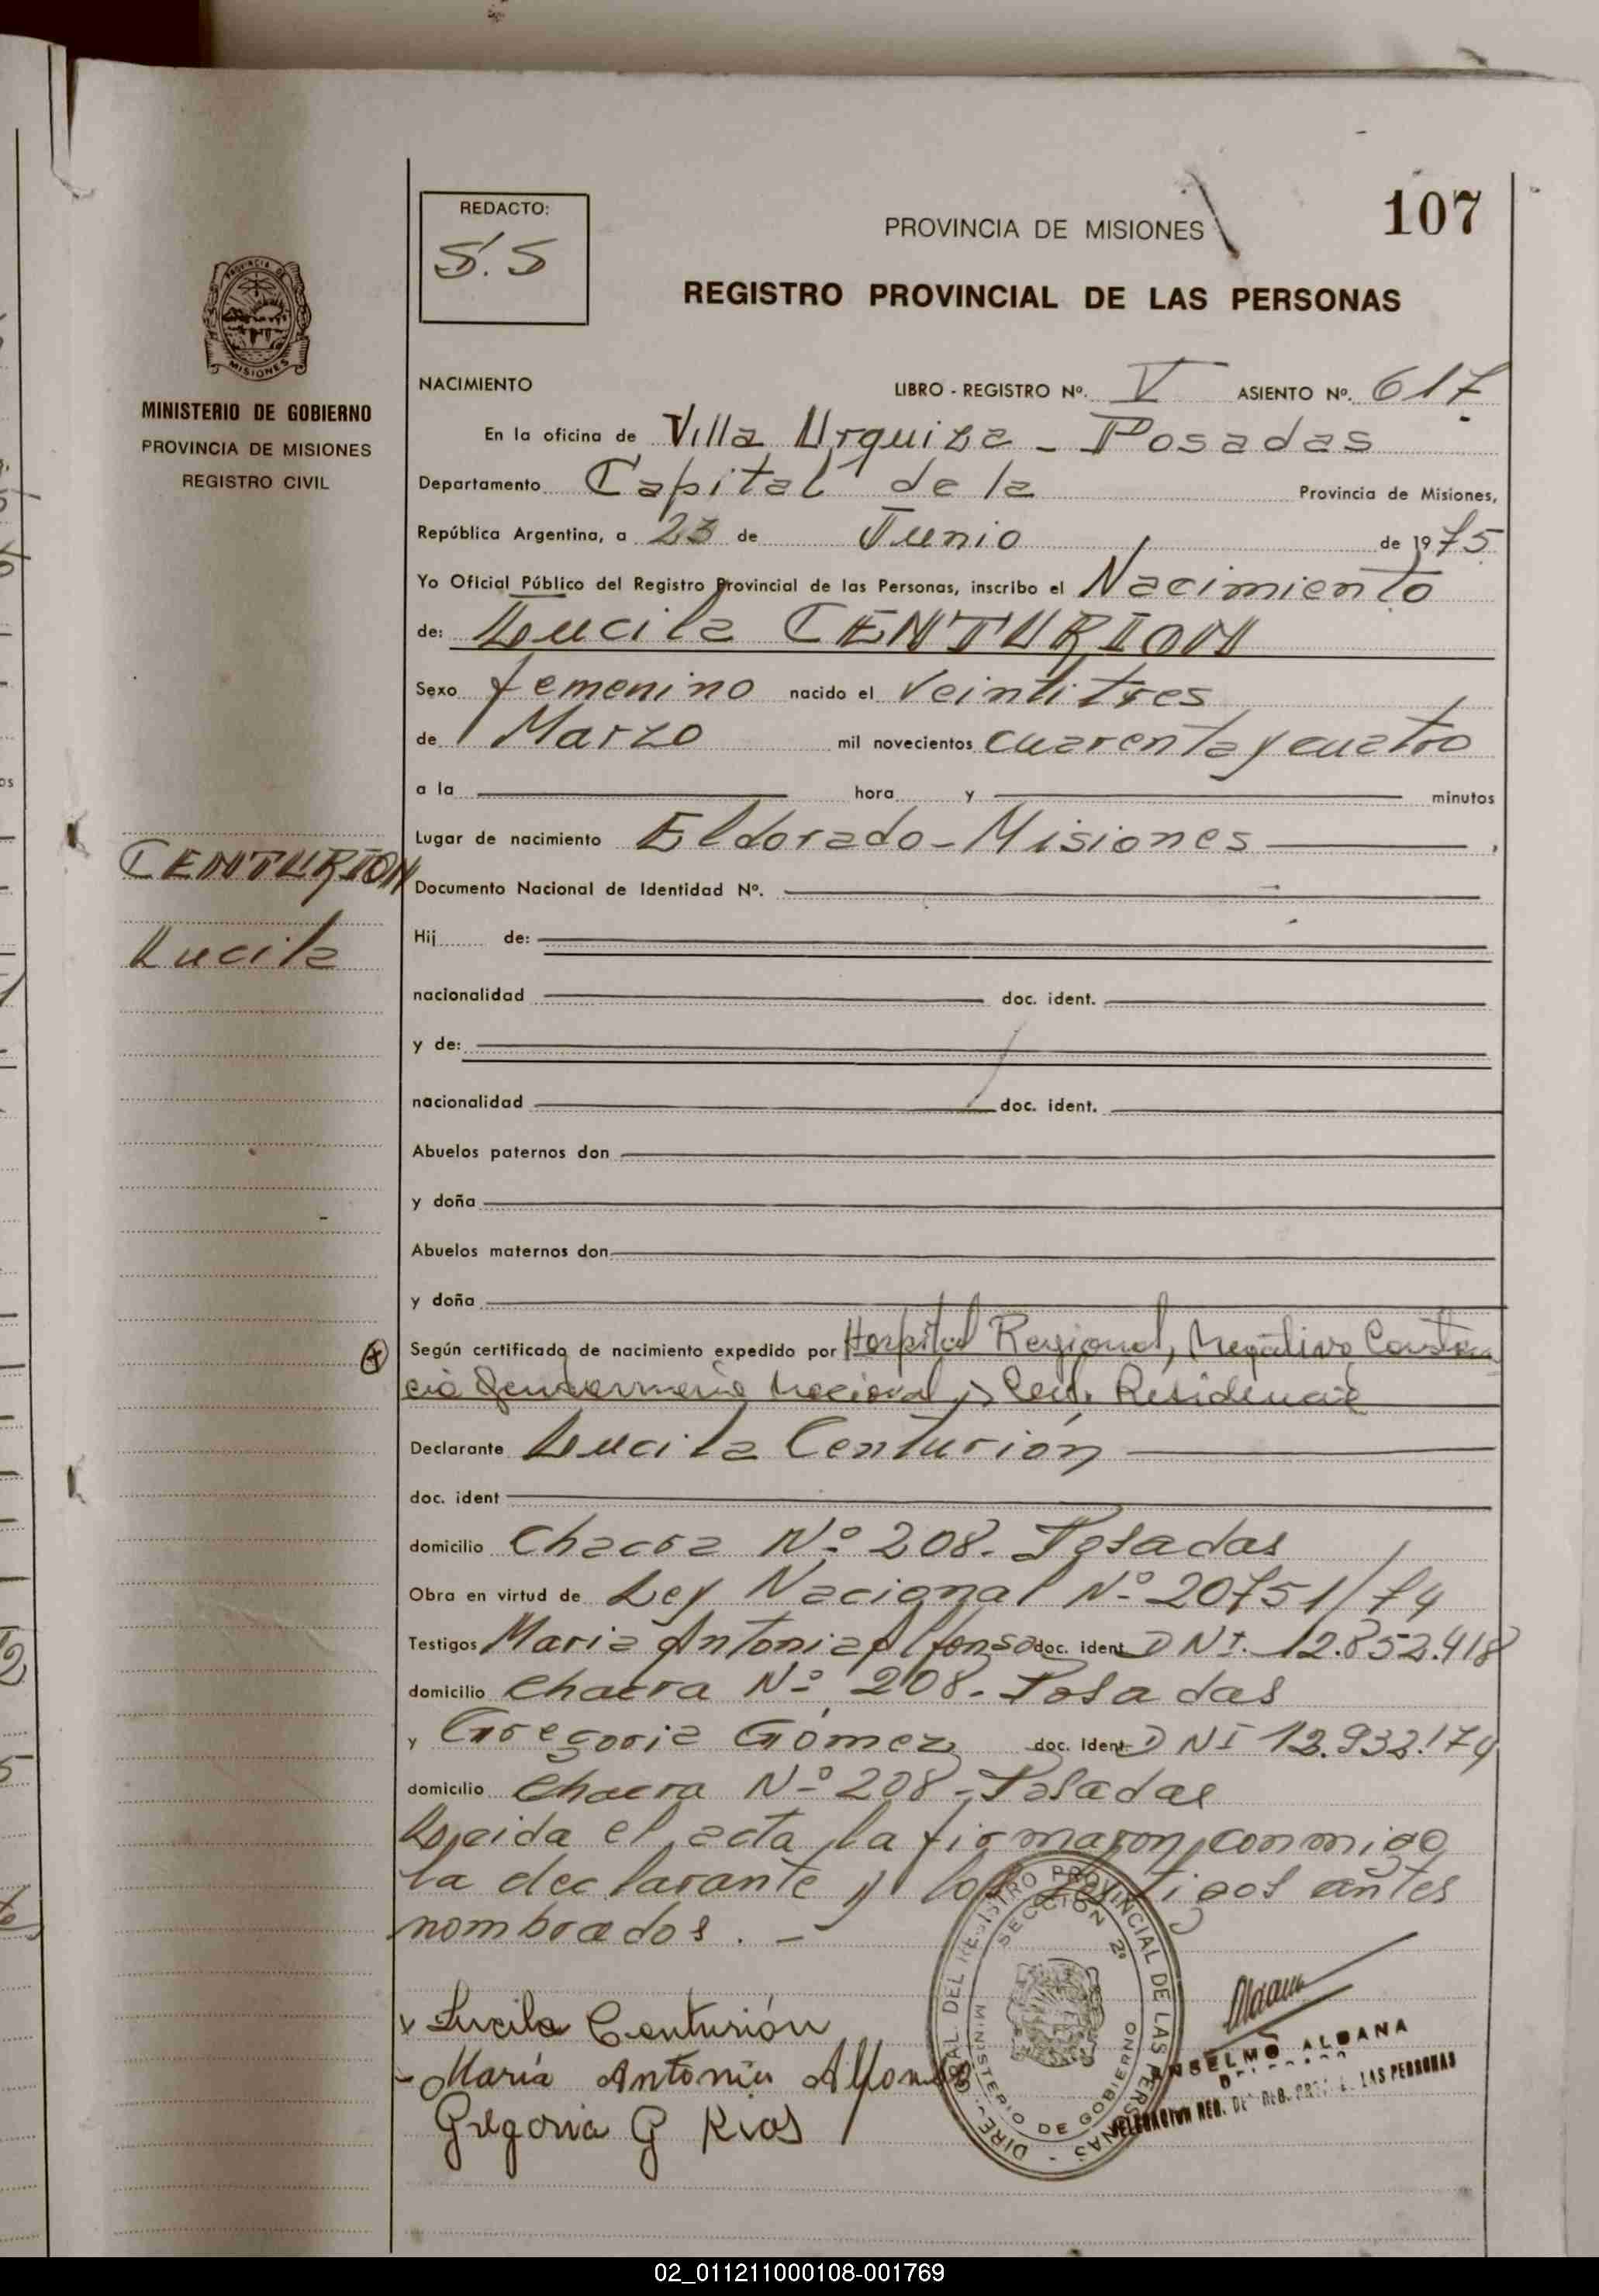 107
REDACTO:
S.S
PROVINCIA DE MISIONES
REGISTRO PROVINCIAL DE LAS PERSONAS
MISIONES
MINISTERIO DE GOBIERNO
PROVINCIA DE MISIONES
REGISTRO CIVIL
NACIMIENTO LIBRO - REGISTRO Nº. V ASIENTO Nº. 617
En la oficina de Villa Urquiza - Posadas
Departamento Capital de la Provincia de Misiones,
República Argentina, a 23 de Junio de 1975
Yo Oficial Público del Registro Provincial de las Personas, inscribo el Nacimiento
de: Lucila CENTURION
Sexo femenino nacido el veintitres
de Marzo mil novecientos cuarenta y cuatro
a la hora y minutos
Lugar de nacimiento Eldorado - Misiones
CENTURION
Lucila
Documento Nacional de Identidad Nº.
Hij de:
nacionalidad doc. ident.
y de:
nacionalidad doc. ident.
Abuelos paternos don
y doña
Abuelos maternos don
y doña
Según certificado de nacimiento expedido por Hospital Regional, Negativo Constan
cia Gendarmeria Nacional y Cert. Residencia
Declarante Lucila Centurión
doc. ident
domicilio Chacra Nº 208. Posadas
Obra en virtud de Ley Nacional Nº 20751/74
Testigos Maria Antonia Alfonso doc. ident DNI. 12.852.418
domicilio Chacra Nº 208. Posadas
y Gregoria Gómez doc. Ident DNI 12.932.174
domicilio Chacra Nº 208 - Posadas
Leida el acta la firmaron conmigo
la declarante y los testigos antes
nombrados. -
x Lucila Centurión
- María Antonia Alfonso
Gregoria G Rios
DEL REGISTRO PROVINCIAL DE LAS PERSONAS
SECCION 2º
MINISTERIO DE GOBIERNO
ANSELMO ALDANA
LAS PERSONAS
02_011211000108-001769